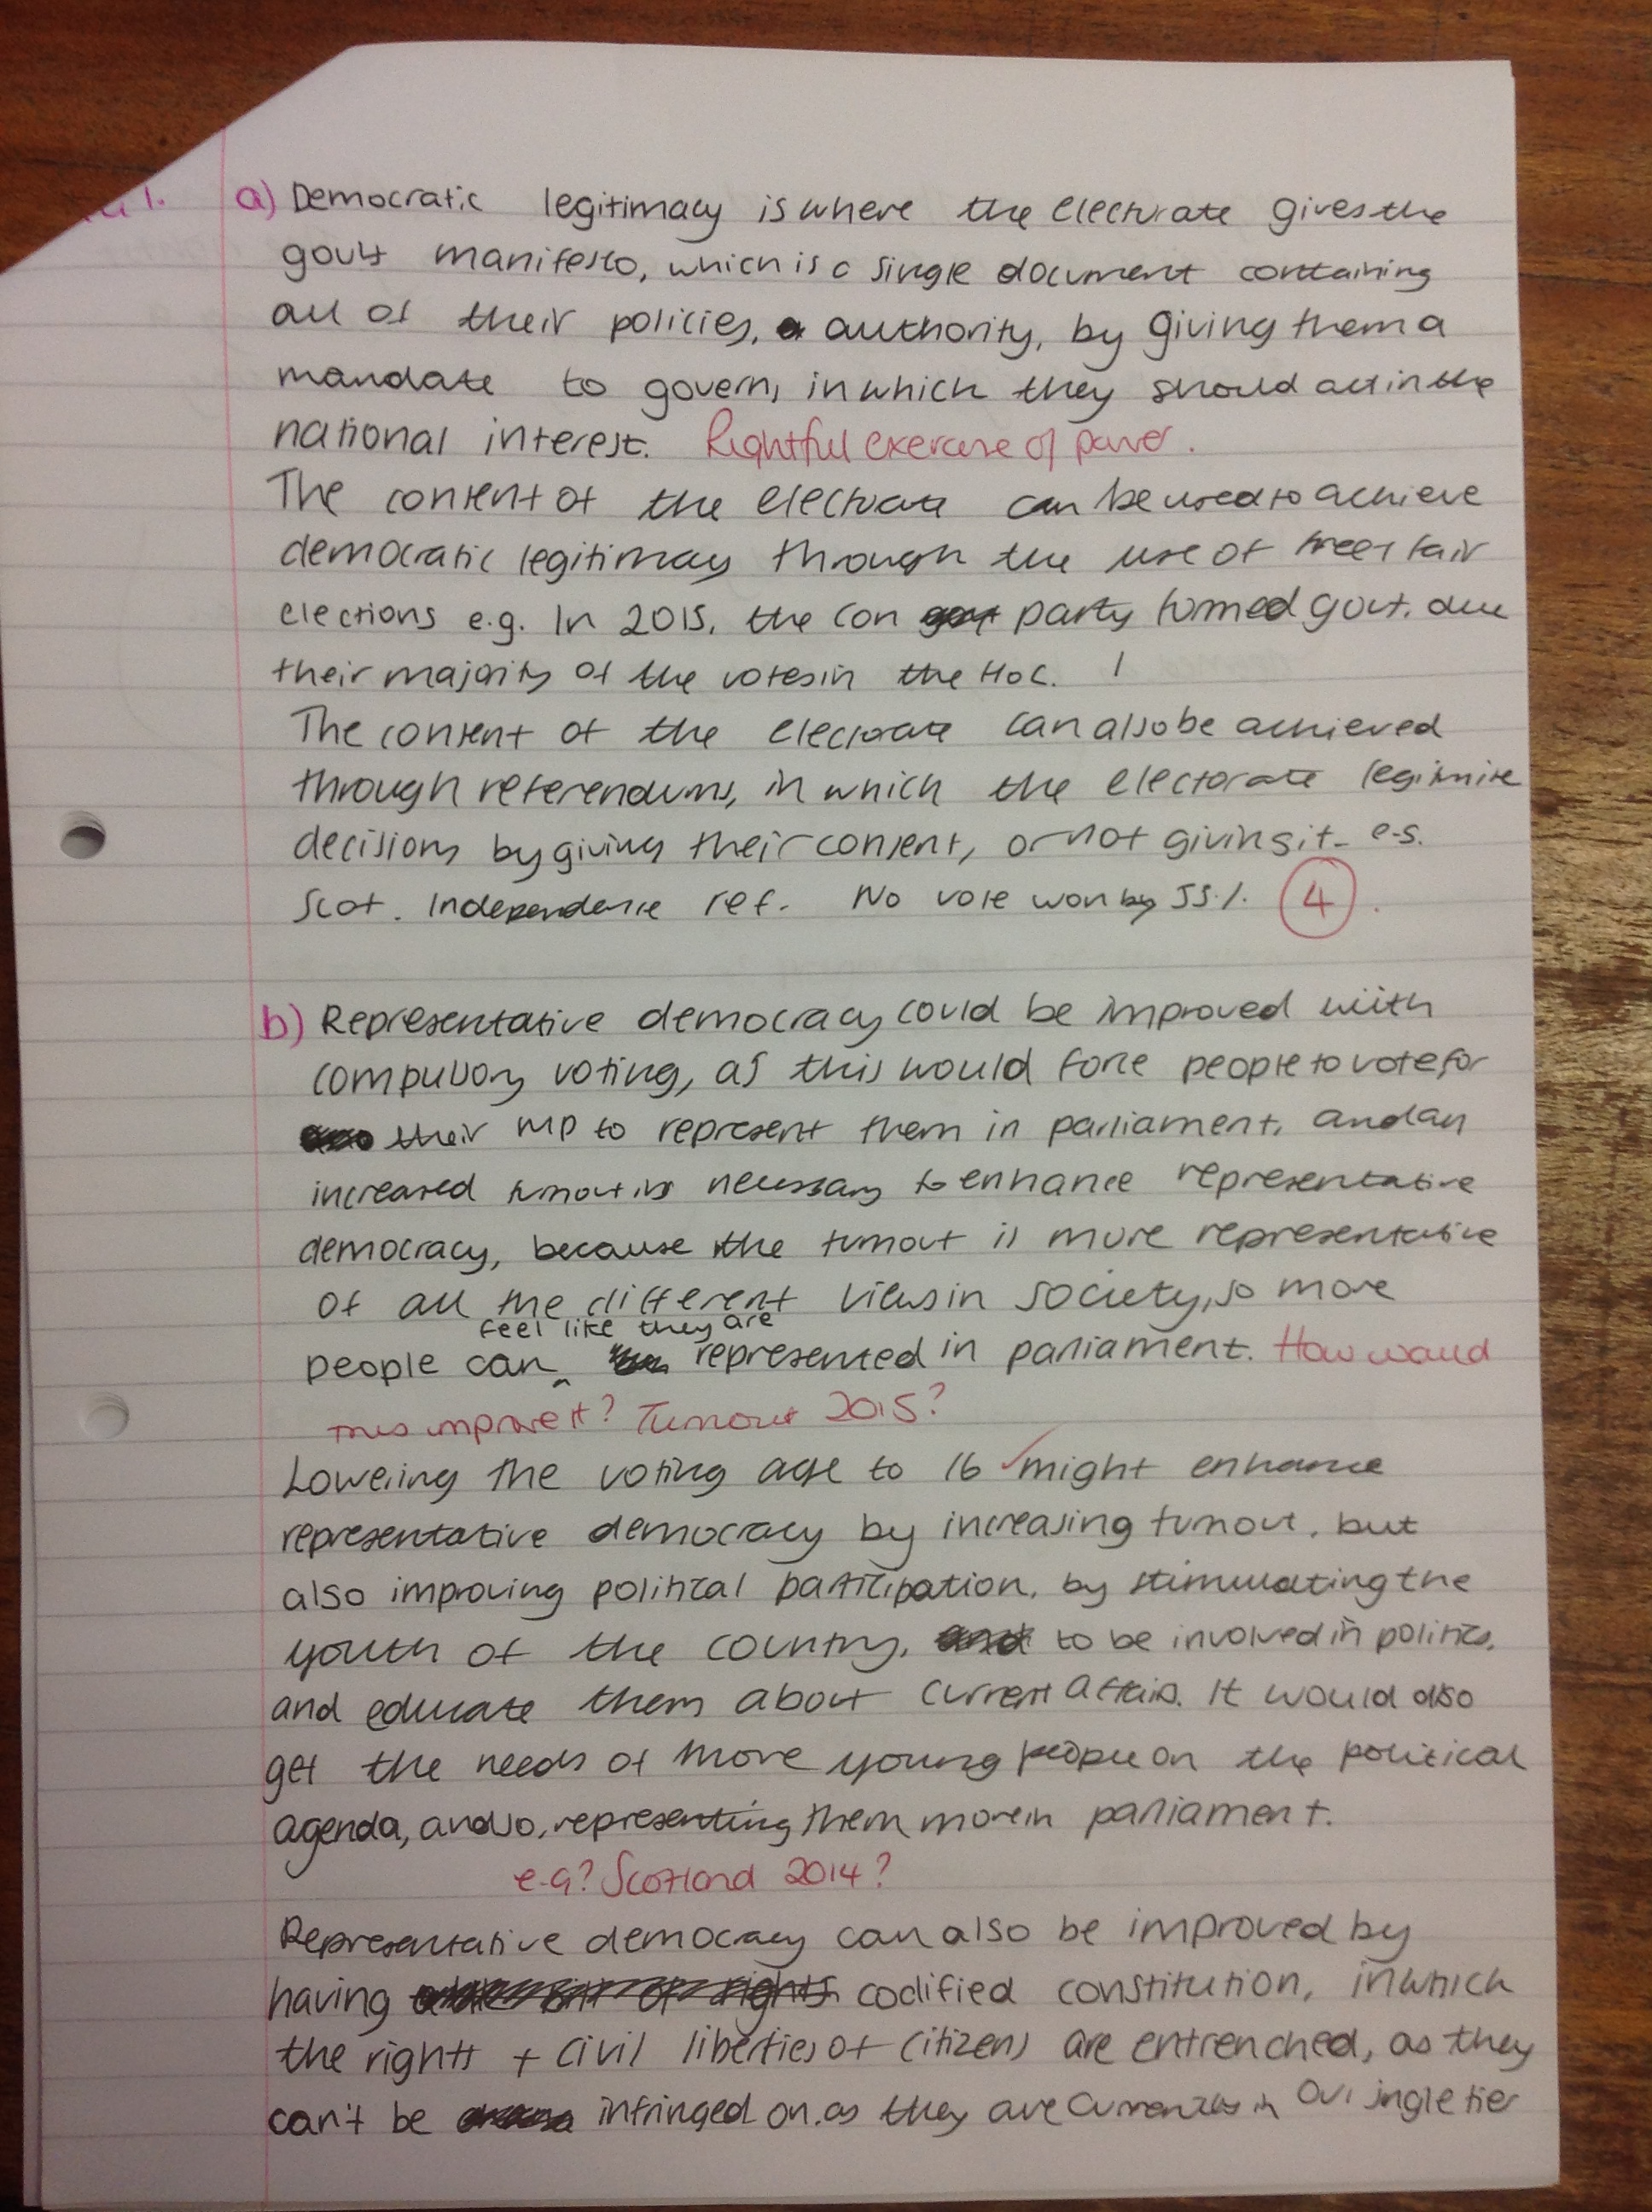 1. a) Democratic legitimacy is where the electorate gives the
govt manifesto, which is a single document containing
all of their policies, authority, by giving them a
mandate to govern, in which they should act in the
national interest. Rightful exercise of power.
The consent of the electorate can be used to achieve
democratic legitimacy through the use of free + fair
elections e.g. In 2015, the con party formed govt. due
their majority of the votes in the HoC. !
The consent of the electorate can also be achieved
through referendums, in which the electorate legitimise
decisions by giving their consent, or not giving it - e.g.
Scot. Independence ref. No vote won by 55%. 4
b) Representative democracy could be improved with
compulsory voting, as this would force people to vote for
their MP to represent them in parliament, and an
increased turnout is necessary to enhance representative
democracy, because the turnout is more representative
of all the different views in society, so more
feel like they are
people can represented in parliament. How would
this improve it? Turnout 2015?
Lowering the voting age to 16 might enhance
representative democracy by increasing turnout, but
also improving political participation, by stimulating the
youth of the country, to be involved in politics,
and educate them about current affairs. It would also
get the needs of more young people on the political
agenda, and so, representing them more in parliament.
e.g? Scotland 2014?
Representative democracy can also be improved by
having codified constitution, in which
the rights + civil liberties of citizens are entrenched, as they
can't be infringed on, as they are currently in our single tier